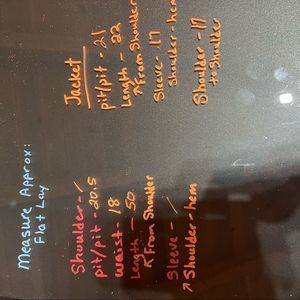 Measure Approx:
Flat Lay
Shoulder - /
pit/pit - 20.5
waist - 18
Length - 50
↖ From Shoulder
Sleeve - /
↗ Shoulder - hem
Jacket
pit/pit - 21
Length - 22
↗ From Shoulder
Sleeve - 17
Shoulder - hem
Shoulder - 17
to Shoulder